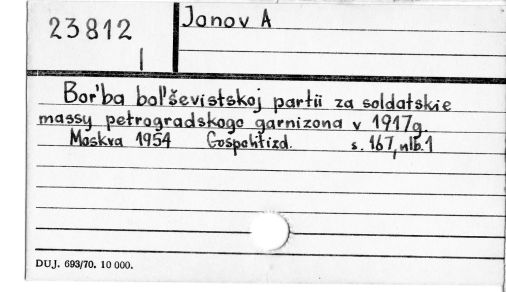 23812
I
Janov A
Bor'ba bol'ševistskoj partii za soldatskie
massy petrogradskogo garnizona v 1917g.
Moskva 1954 Gospolitizd. s. 167, nlb. 1
DUJ. 693/70. 10 000.